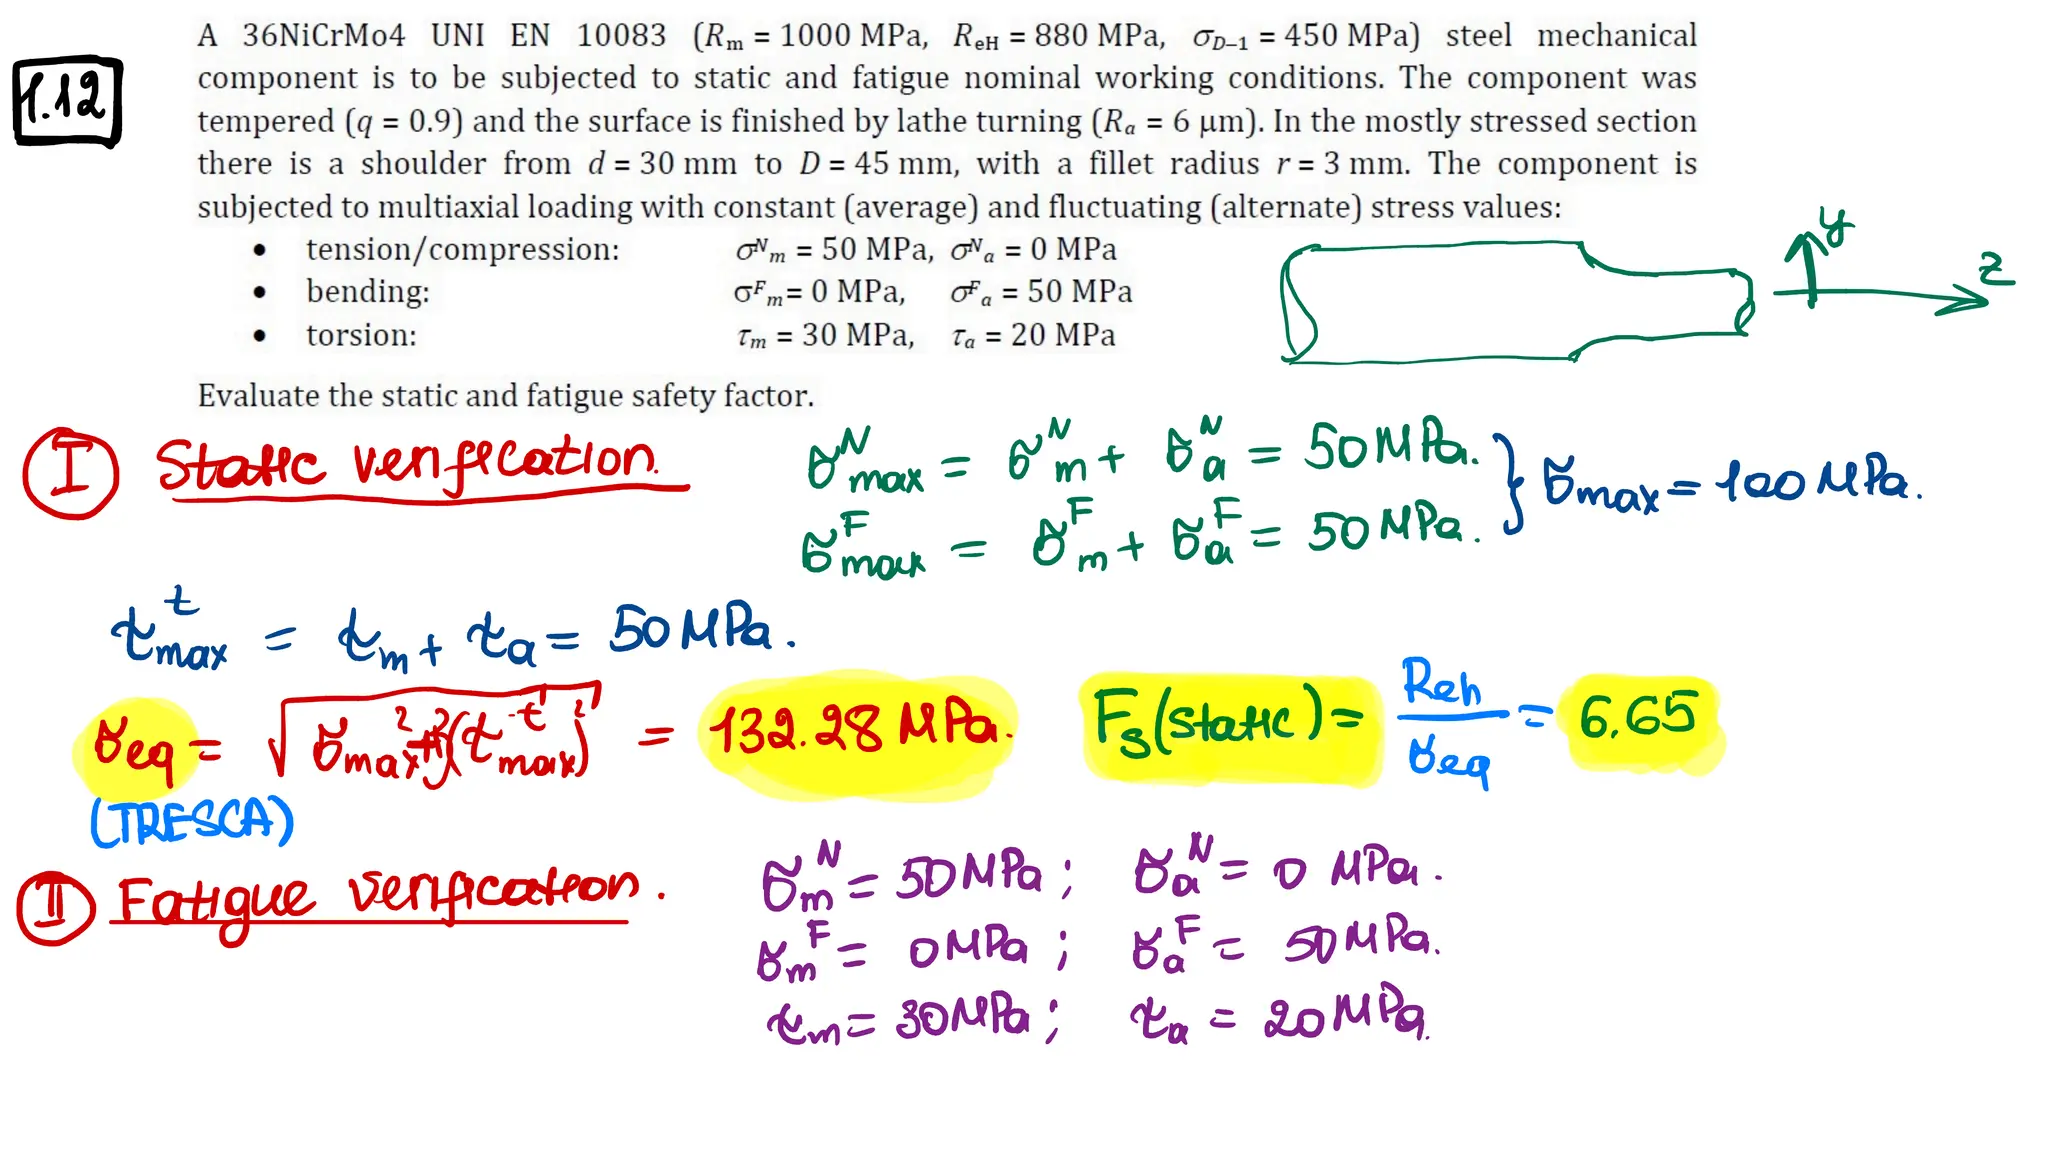 1.12
A 36NiCrMo4 UNI EN 10083 (Rm = 1000 MPa, ReH = 880 MPa, σD–1 = 450 MPa) steel mechanical
component is to be subjected to static and fatigue nominal working conditions. The component was
tempered (q = 0.9) and the surface is finished by lathe turning (Ra = 6 μm). In the mostly stressed section
there is a shoulder from d = 30 mm to D = 45 mm, with a fillet radius r = 3 mm. The component is
subjected to multiaxial loading with constant (average) and fluctuating (alternate) stress values:
• tension/compression: σNm = 50 MPa, σNa = 0 MPa
• bending: σFm= 0 MPa, σFa = 50 MPa
• torsion: τm = 30 MPa, τa = 20 MPa
y
z
Evaluate the static and fatigue safety factor.
I Static verification.
σNmax = σNm + σNa = 50 MPa.
σFmax = σFm + σFa = 50 MPa.
} σmax = 100 MPa.
τtmax = τm + τa = 50 MPa.
σeq = √σmax² + (τtmax)² = 132.28 MPa. Fs(static) = ReH/σeq = 6.65
(TRESCA)
II Fatigue verification.
σNm = 50 MPa; σNa = 0 MPa.
σFm = 0 MPa; σFa = 50 MPa.
τm = 30 MPa; τa = 20 MPa.